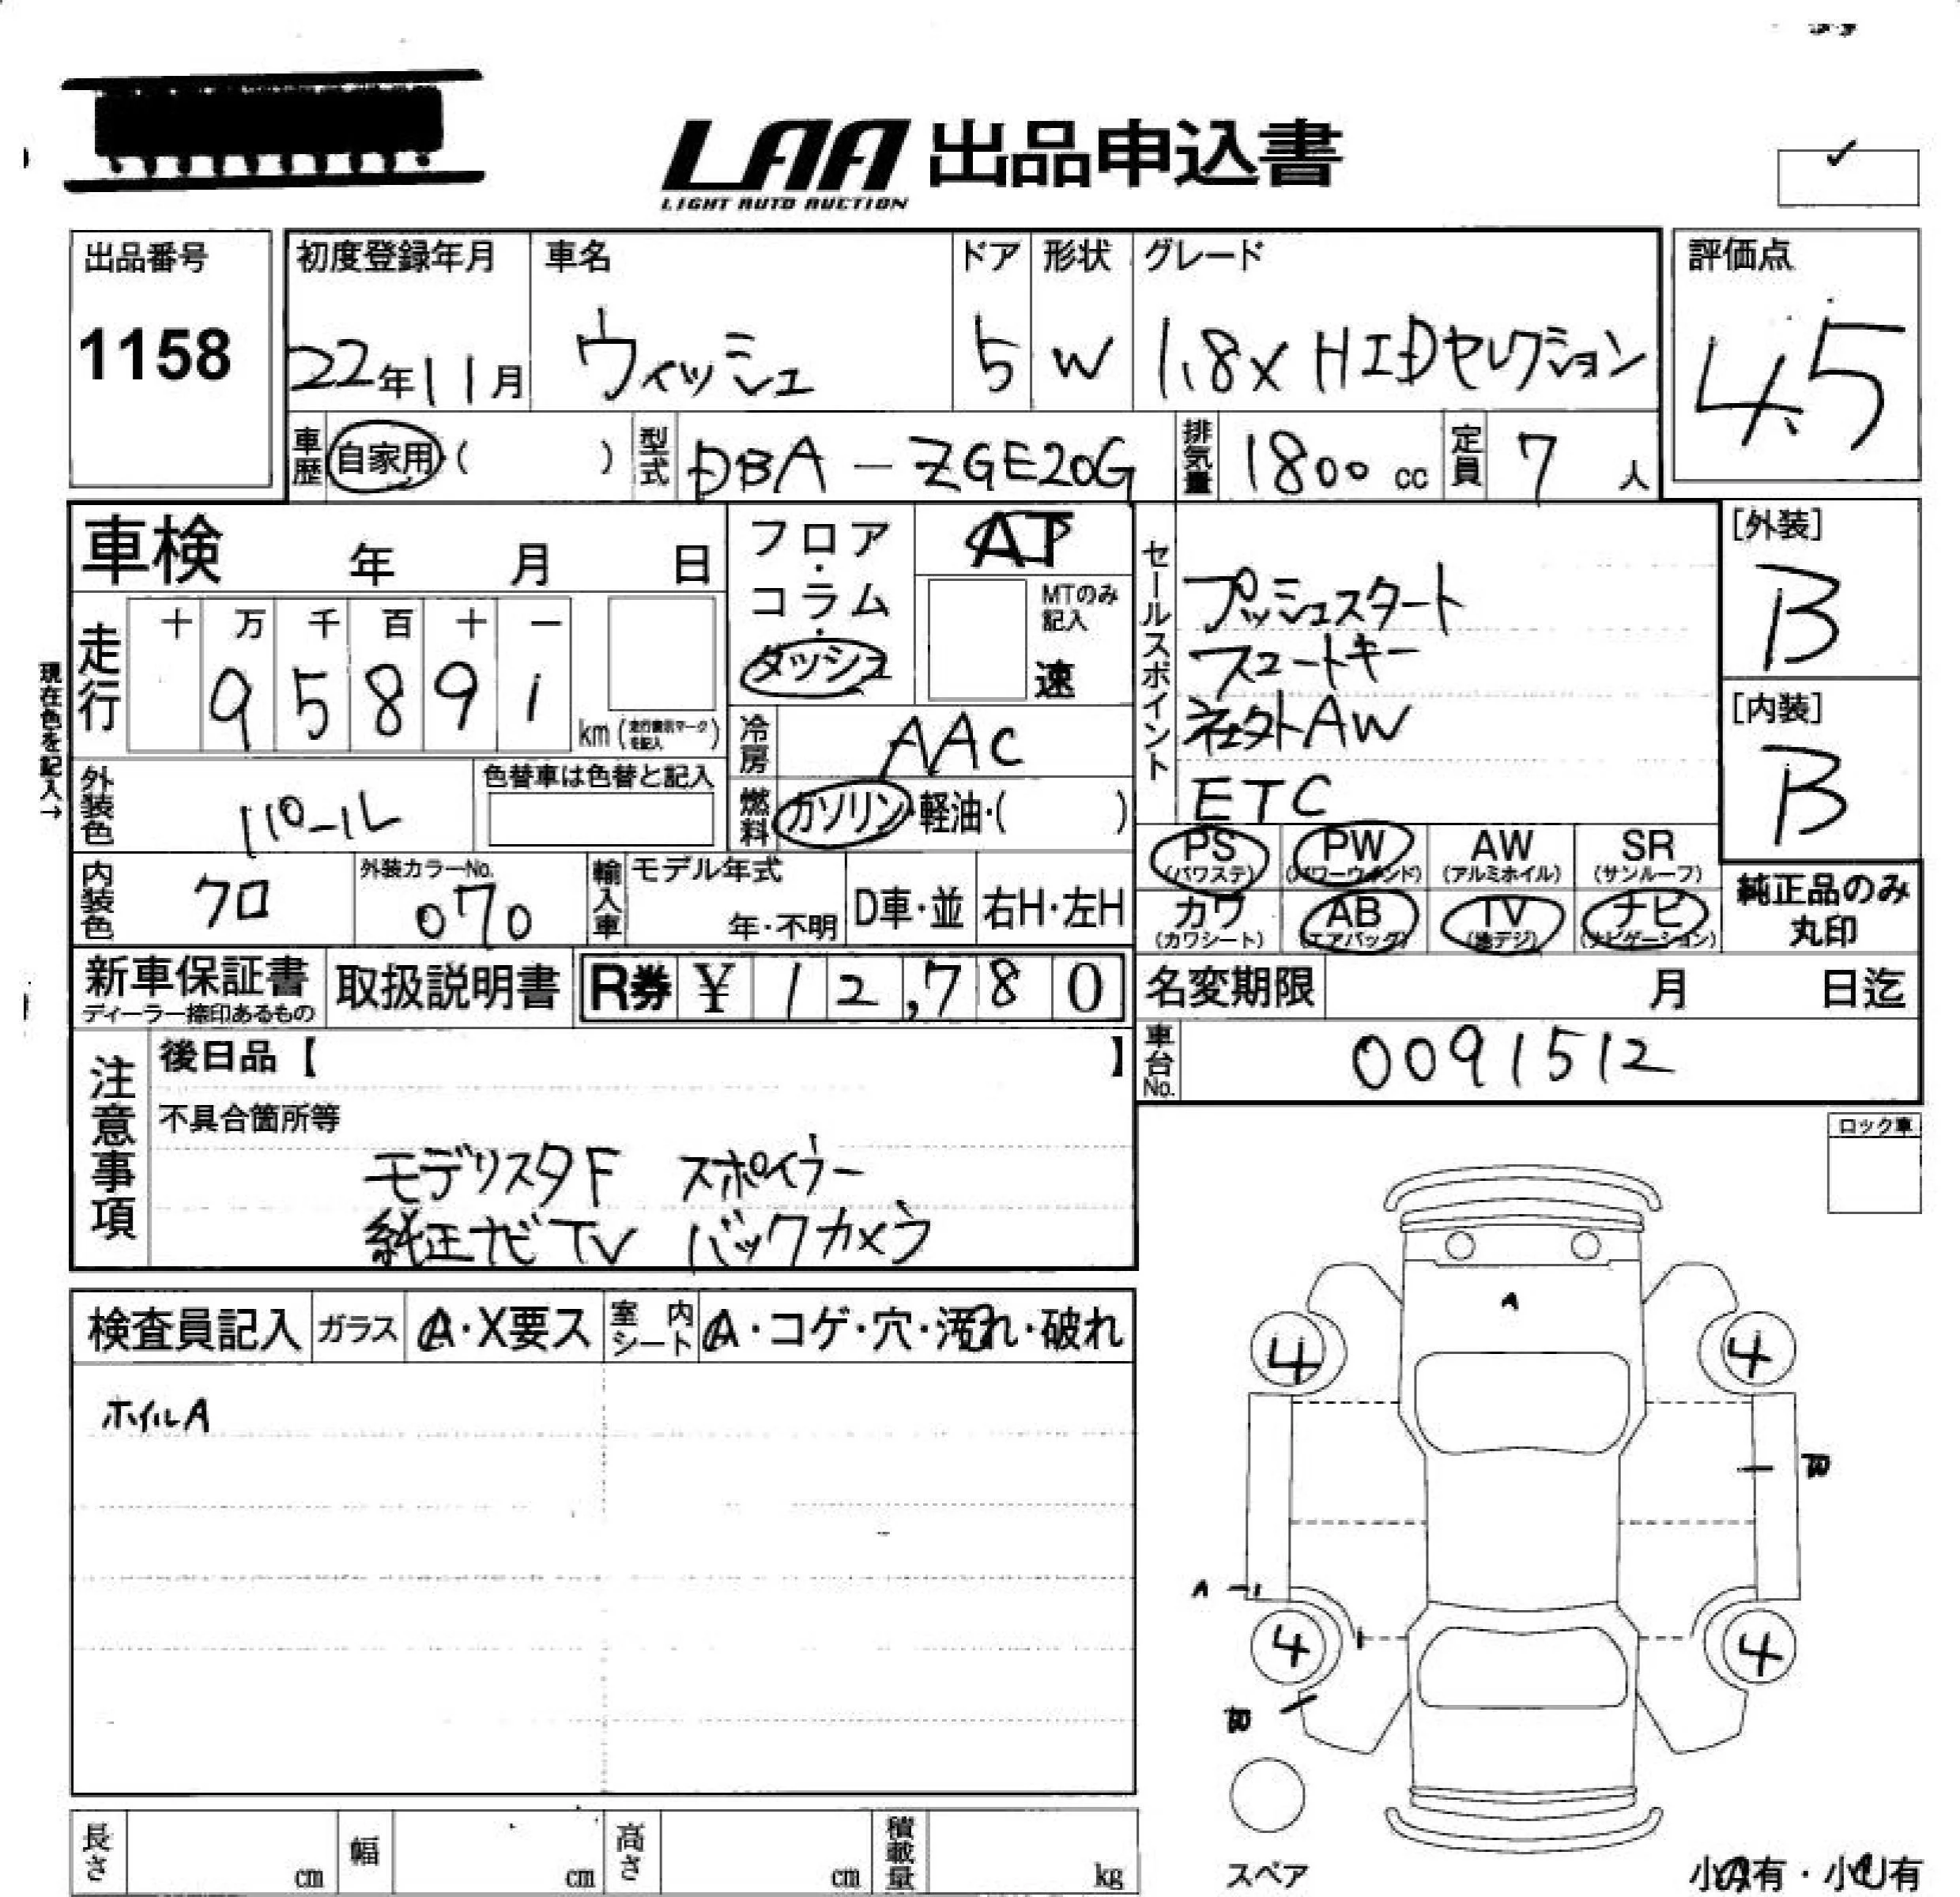 LAA 出品申込書
LIGHT AUTO AUCTION
出品番号
1158
初度登録年月
22年11月
車名
ウィッシュ
ドア
5
形状
W
グレード
1.8X HIDセレクション
評価点
4.5
車歴
自家用・( )
型式
DBA-ZGE20G
排気量
1800 cc
定員
7 人
車検 年 月 日
フロア・コラム・ダッシュ
AT
MTのみ記入
速
セールスポイント
プッシュスタート
スマートキー
社外AW
ETC
[外装]
B
[内装]
B
現在色を記入→
走行
十 万 千 百 十 一
9 5 8 9 1
km(走行表示マークを記入)
冷房
AAC
外装色
パール
色替車は色替と記入
燃料
ガソリン・軽油・( )
PS PW AW SR
(パワステ) (パワーウインド) (アルミホイル) (サンルーフ)
カワ AB TV ナビ
(カワシート) (エアバッグ) (地デジ) (ナビゲーション)
純正品のみ
丸印
内装色
クロ
外装カラーNo.
070
輸入車
モデル年式
年・不明
D車・並
右H・左H
新車保証書
ディーラー捺印あるもの
取扱説明書
R券 ¥ 12,780
名変期限 月 日迄
車台No.
0091512
注意事項
後日品【 】
不具合箇所等
モデリスタF スポイラー
純正ナビTV バックカメラ
ロック車
検査員記入
ガラス
A・X要ス
室内シート
A・コゲ・穴・汚れ・破れ
ホイルA
A
4 4
A
4 4
スペア
長さ cm
幅 cm
高さ cm
積載量 kg
小A有・小U有